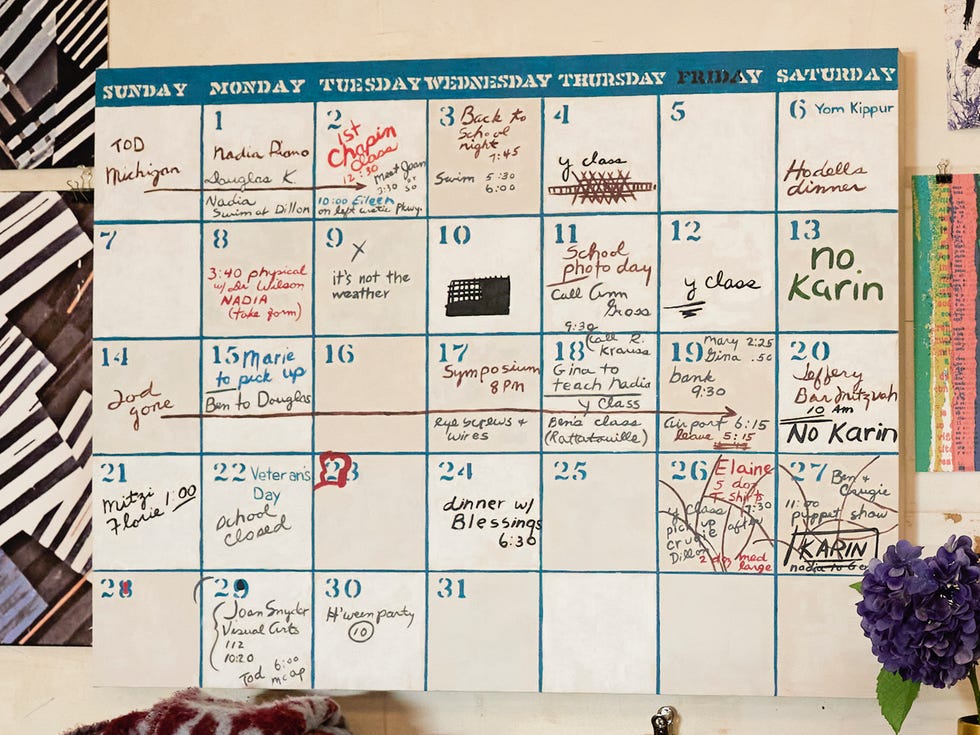 SUNDAY MONDAY TUESDAY WEDNESDAY THURSDAY FRIDAY SATURDAY
TOD
Michigan
1
Nadia Piano
Douglas K.
Nadia
Swim at Dillon
2
1st
Chapin
Class
12:30
Meet Joan
3:30 or
50
10:00 Eileen
on left Pkwy.
3 Back to
School
night
7:45
Swim 5:30
6:00
4
y class
5
6 Yom Kippur
Hodells
dinner
7
8
3:40 physical
w/ Dr Wilson
NADIA
(take form)
9
X
it's not the
weather
10
11
School
photo day
Call Ann
Gross
9:30
12
y class
13
no
Karin
14
Tod
gone
15 Marie
to pick up
Ben to Douglas
16
17
Symposium
8PM
eye screws +
wires
Call R.
18 Krauss
Gina to
teach Nadia
y Class
Ben's class
(Rattatouille)
19 Mary 2:25
Gina .50
bank
9:30
airport 6:15
leave 5:15
20
Jeffery
Bar Mitzvah
10 Am
No Karin
21
Mitzi 1:00
Florie
22 Veteran's
Day
School
closed
23
24
dinner w/
Blessings
6:30
25
26 Elaine
5 doz
T shirts
y class 7:30
pick up after
Dillon
2 doz med
large
27 Ben &
11:00
puppet show
KARIN
nadia to
28
29
Joan Snyder
Visual Arts
112
10:20
Tod 6:00
30
H'ween party
10
31